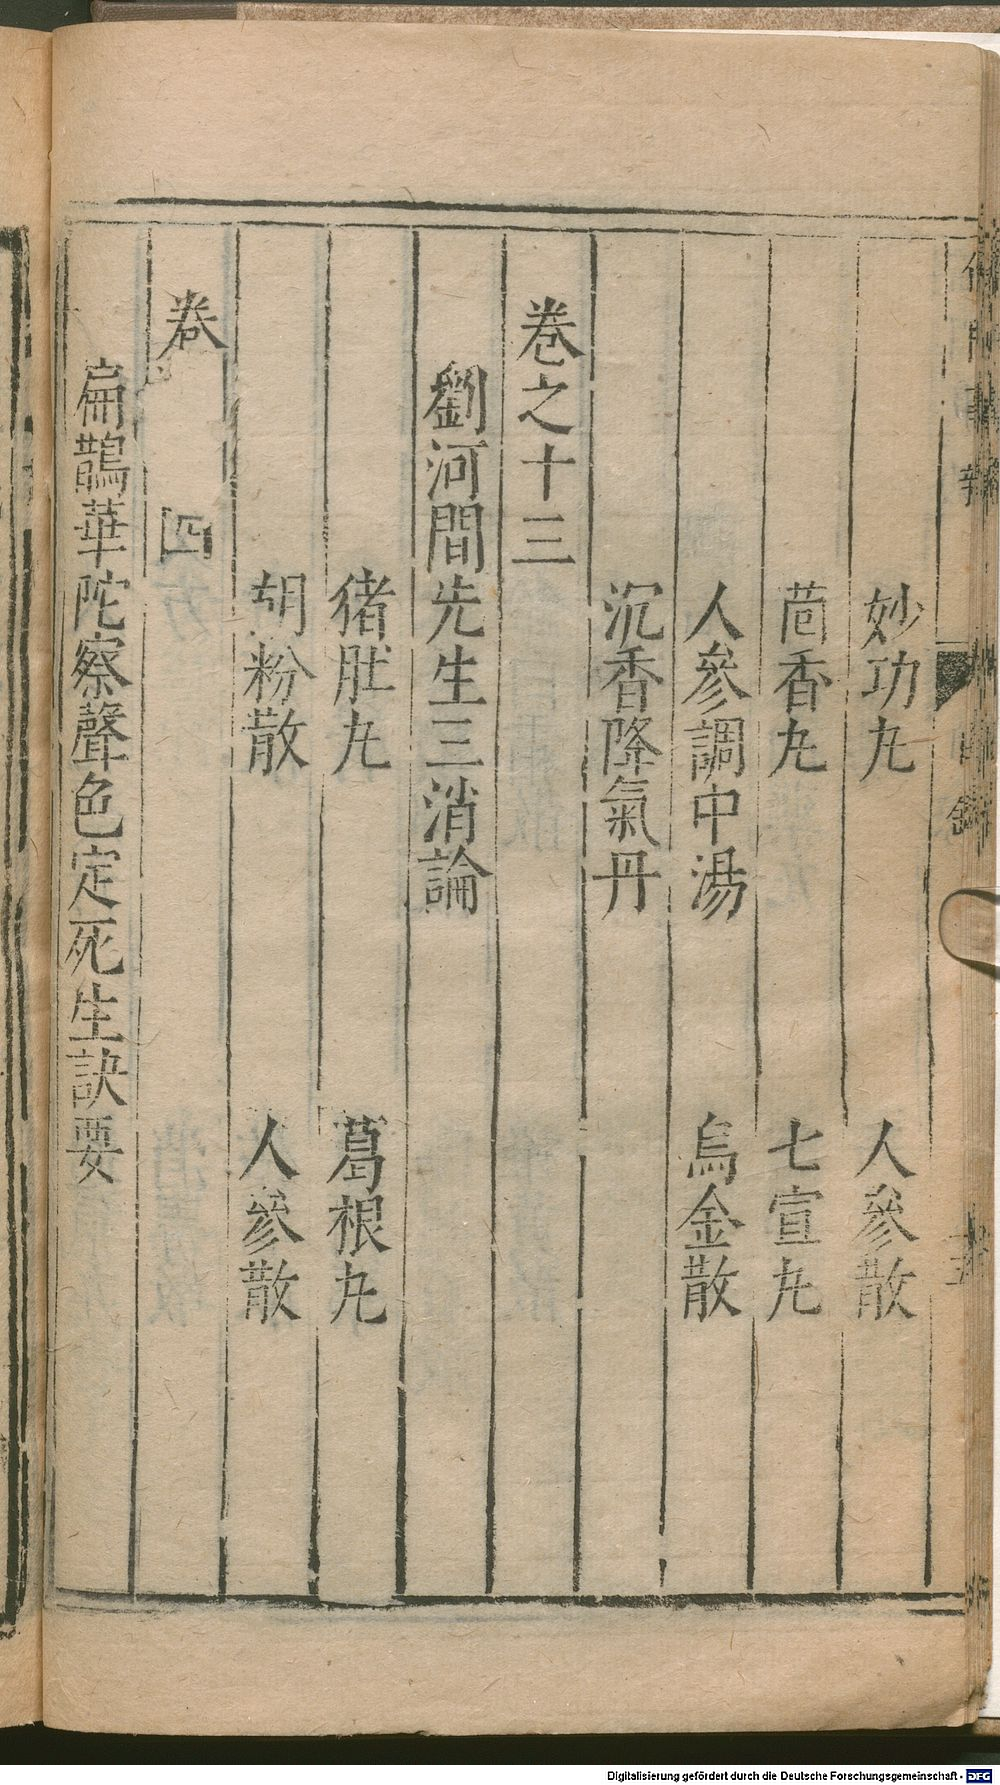 妙功丸　人參散
茴香丸　七宣丸
人參調中湯　烏金散
沉香降氣丹
卷之十三
劉河間先生三消論
猪肚丸　葛根丸
胡粉散　人參散
卷　四
扁鵲華陀察聲色定死生訣要
Digitalisierung gefördert durch die Deutsche Forschungsgemeinschaft - DFG